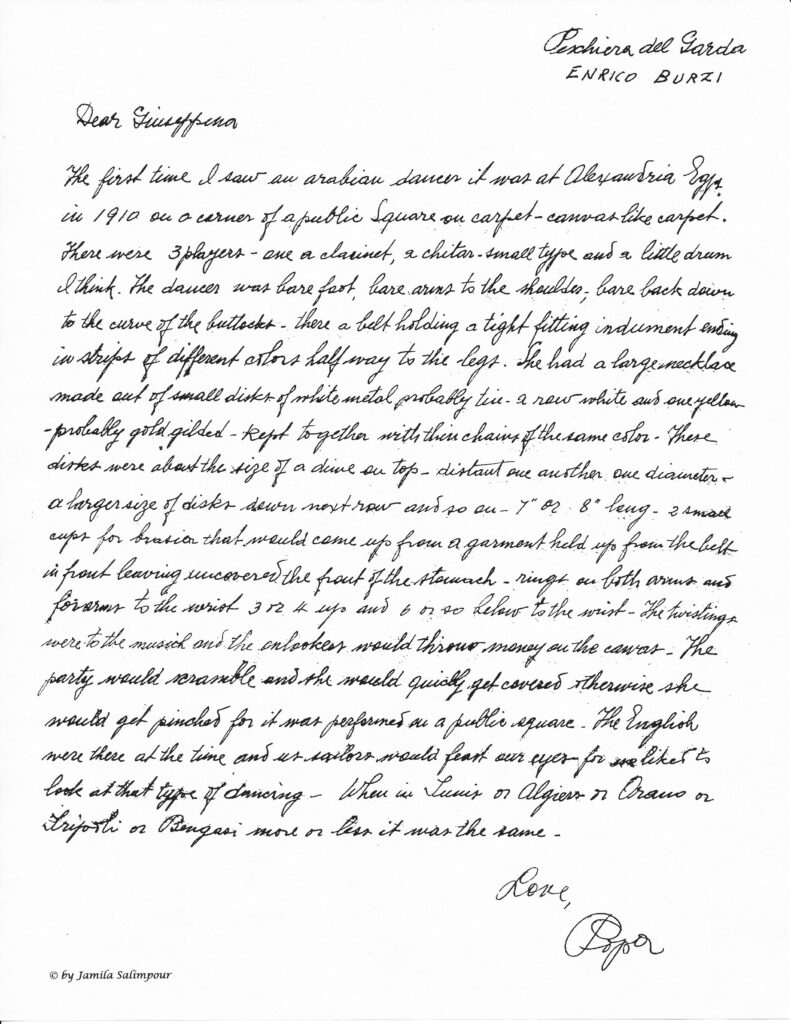 Peschiera del Garda
ENRICO BURZI
Dear Giuseppina
The first time I saw an arabian dancer it was at Alexandria Egp.
in 1910 on a corner of a public Square on carpet - canvas like carpet.
There were 3 players - one a clarinet, a chitar - small type and a little drum
I think. The dancer was bare foot, bare arms to the shoulder, bare back down
to the curve of the buttocks - there a belt holding a tight fitting indument ending
in strips of different colors half way to the legs. She had a large necklace
made out of small disks of white metal probably tin - a row white and one yellow
- probably gold gilded - kept together with thin chains of the same color - These
disks were about the size of a dime on top - distant one another one diameter -
a larger size of disks down next row and so on - 7" or 8" long - 2 small
cups for brasier that would come up from a garment held up from the belt
in front leaving uncovered the front of the stomach - rings on both arms and
forarms to the wrist 3 or 4 up and 6 or so below to the wrist - The twistings
were to the musich and the onlookers would throw money on the canvas - The
party would scramble and she would quickly get covered otherwise she
would get pinched for it was performed on a public square - The English
were there at the time and us sailors would feast our eyes for we liked to
look at that type of dancing - When in Tunis or Algiers or Orano or
Tripoli or Bengasi more or less it was the same -
Love,
Papa
© by Jamila Salimpour